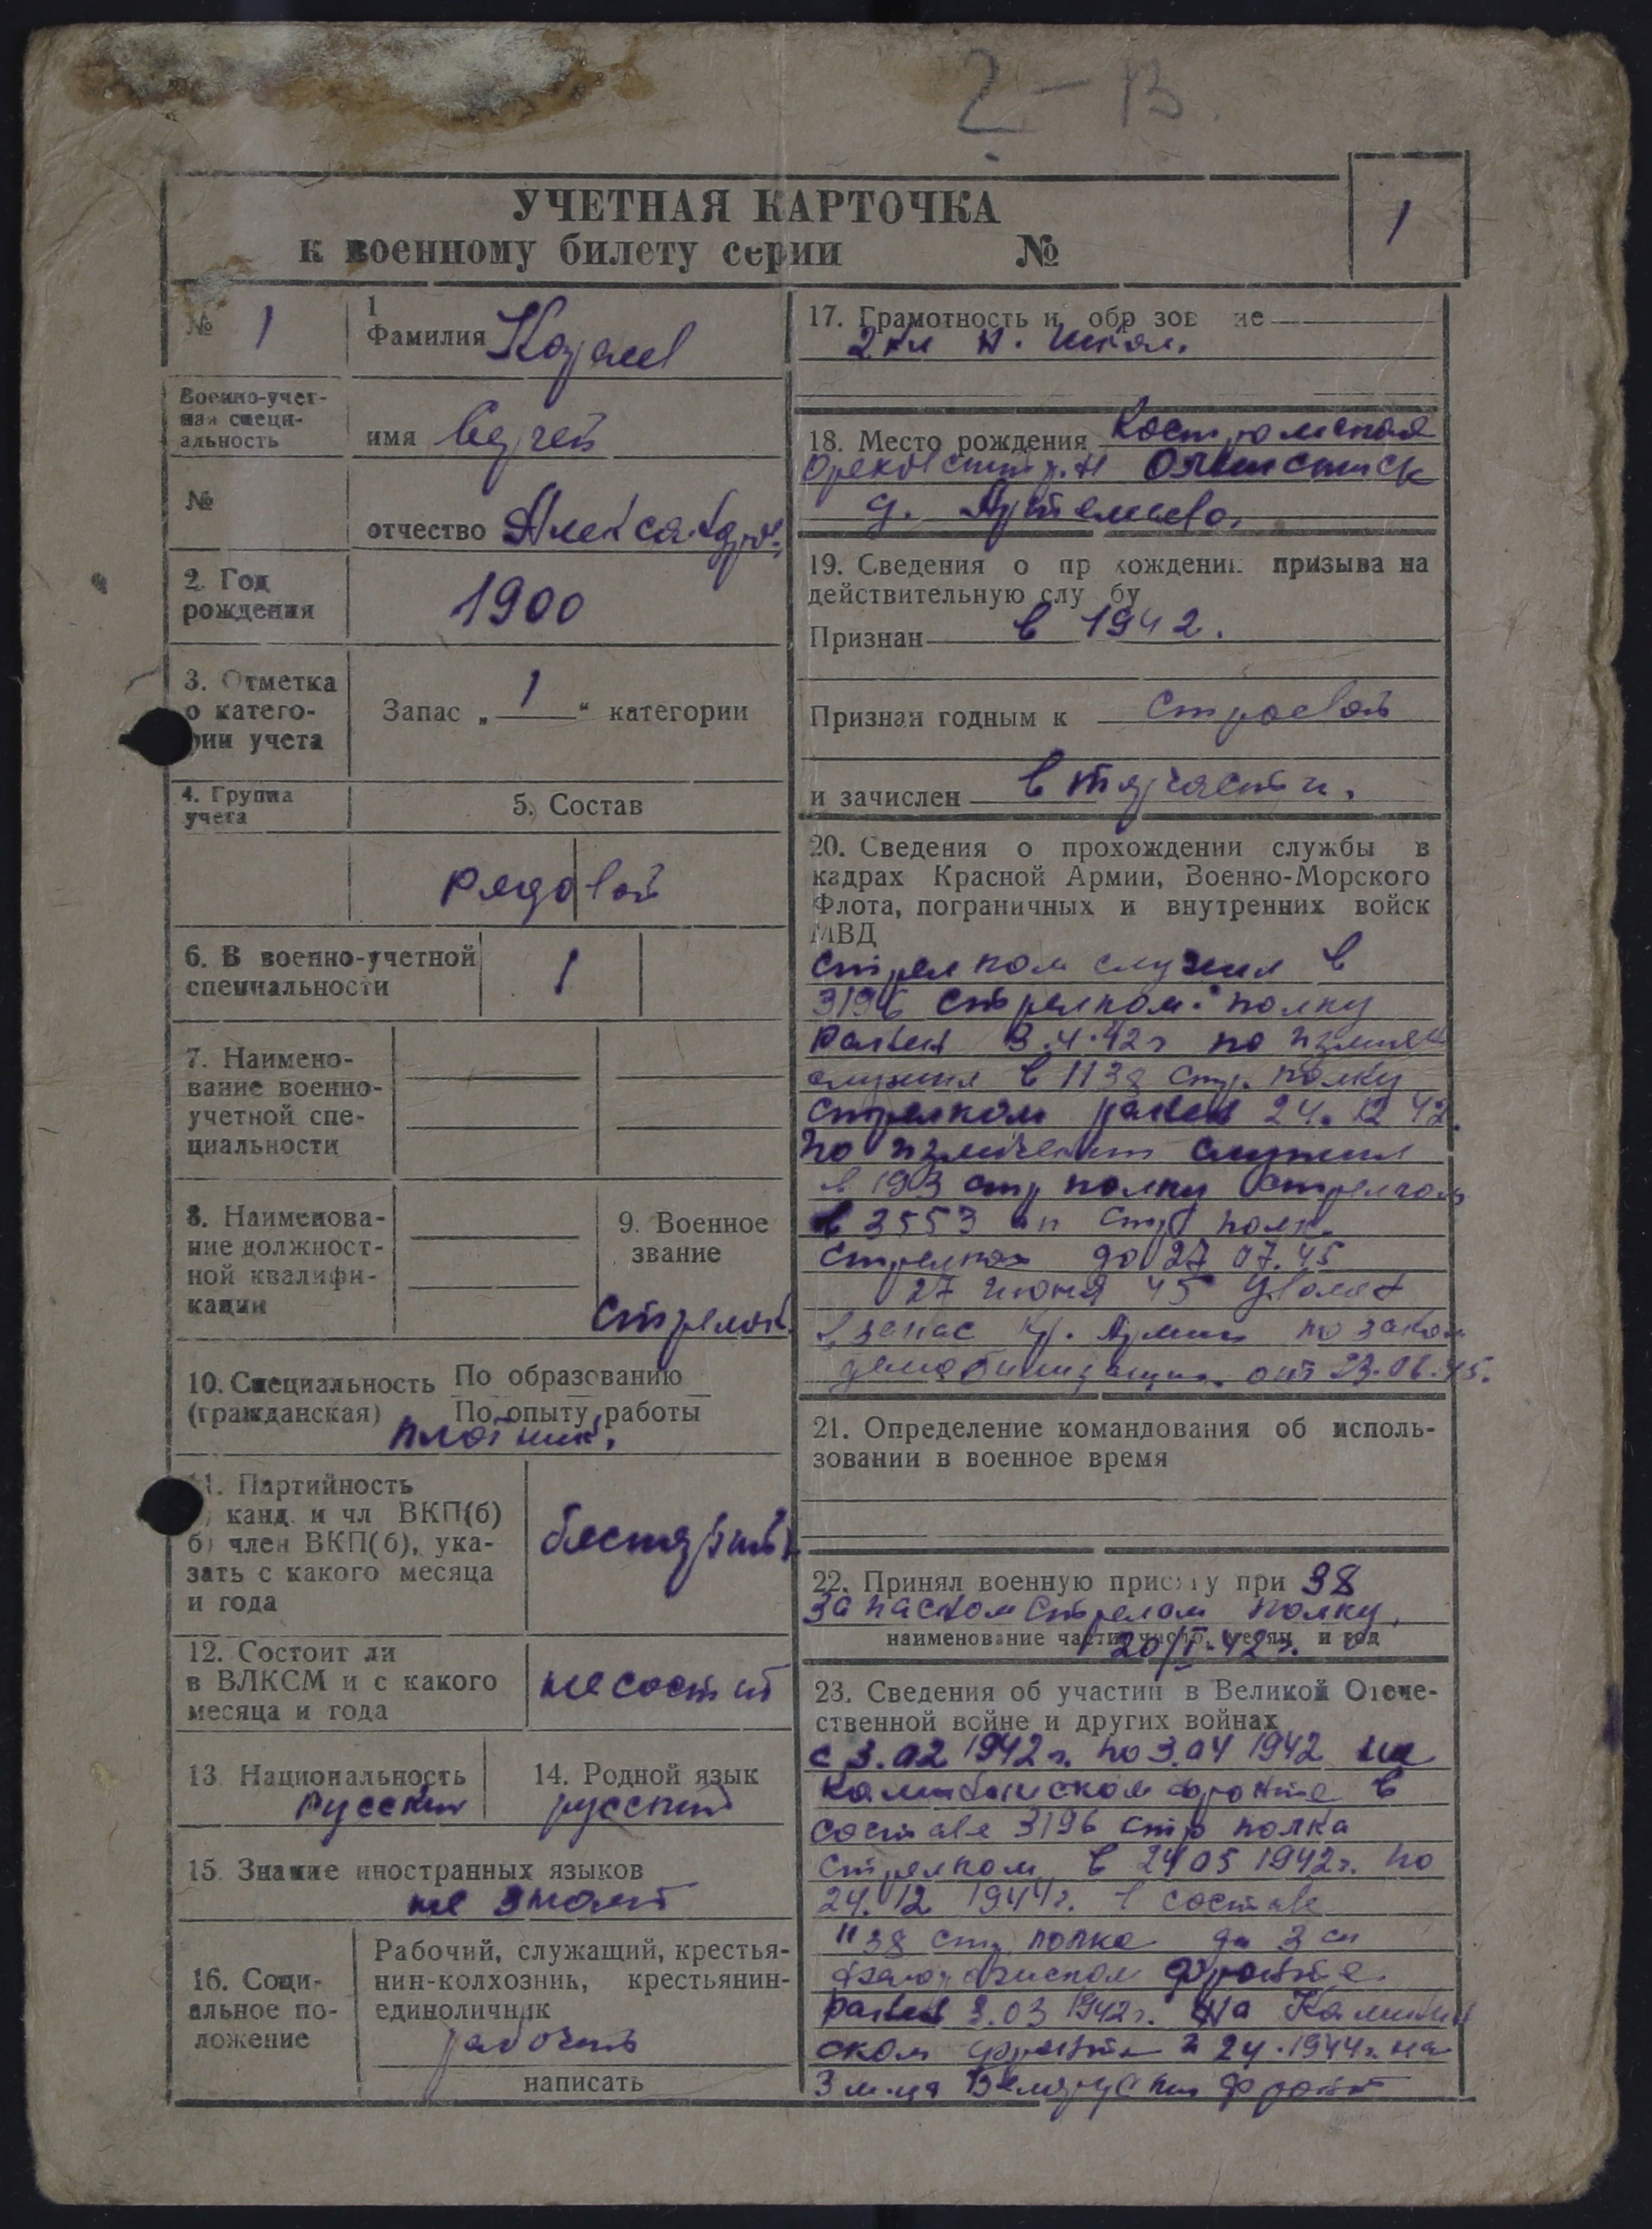 2-В.
УЧЕТНАЯ КАРТОЧКА
к военному билету серии №
1
№ 1
1
Фамилия
Военно-учет-
ная специ-
альность
имя
№
отчество
2. Год
рождения
1900
3. Отметка
о катего-
рии учета
Запас „ 1 “ категории
4. Группа
учета
5. Состав
рядовой
6. В военно-учетной
специальности
1
7. Наимено-
вание военно-
учетной спе-
циальности
8. Наименова-
ние должност-
ной квалифи-
кации
9. Военное
звание
Стрелок
10. Специальность По образованию
(гражданская) По опыту работы
плотник.
11. Партийность
канд. и чл ВКП(б)
б) член ВКП(б), ука-
зать с какого месяца
и года
12. Состоит ли
в ВЛКСМ и с какого
месяца и года
не состоит
13 Национальность
Русский
14. Родной язык
русский
15. Знание иностранных языков
не знает
16. Соци-
альное по-
ложение
Рабочий, служащий, крестья-
нин-колхозник, крестьянин-
единоличник
рабочий
написать
17. Грамотность и обр зов ие
2 кл н. школ.
18. Место рождения
д.
19. Сведения о пр хождении призыва на
действительную слу бу
Признан в 1942.
Признан годным к строевой
и зачислен
20. Сведения о прохождении службы в
кадрах Красной Армии, Военно-Морского
Флота, пограничных и внутренних войск
МВД
стрелком служил в
3196 стрелком. полку
ранен 3.4.42г по
служил в 1138 стр. полку
стрелком ранен 24.12 42.
по служил
в стр полку стрелком
в 3553 стр полк.
до 27 07.45
27 июня 45 уволен
в запас Кр. Армии по закон
демобилизации. от 23.06.45.
21. Определение командования об исполь-
зовании в военное время
22. Принял военную прися у при 38
запасном стрелком полку.
наименование части, число, месяц и год
20/I-42г.
23. Сведения об участии в Великой Отече-
ственной войне и других войнах
с 3.02 1942г. по 3.04 1942 на
Калининском фронте в
составе 3196 стр полка
стрелком в 24 05 1942г. по
24.12 1944г. в составе
1138 стр полка
фронте.
ранен 3.03 1942г. на Калинин
ском фронте и 24.1944г. на
фронт